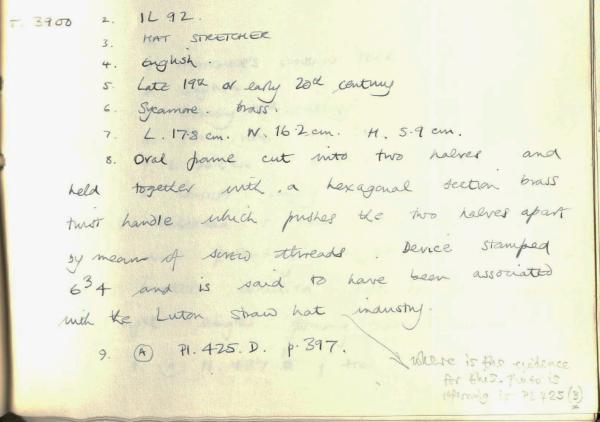 T. 3900 2. IL 92.
3. HAT STRETCHER
4. English.
5. Late 19th or early 20th century
6. Sycamore. brass.
7. L. 17.8 cm. W. 16.2 cm. H. 5.9 cm.
8. Oval frame cut into two halves and
held together with a hexagonal section brass
twist handle which pushes the two halves apart
by means of screw threads. Device stamped
6 3/4 and is said to have been associated
with the Luton straw hat industry.
9. (A) Pl. 425. D. p. 397.
where is the evidence
for this. Pinto is
referring to Pl 425 (B)